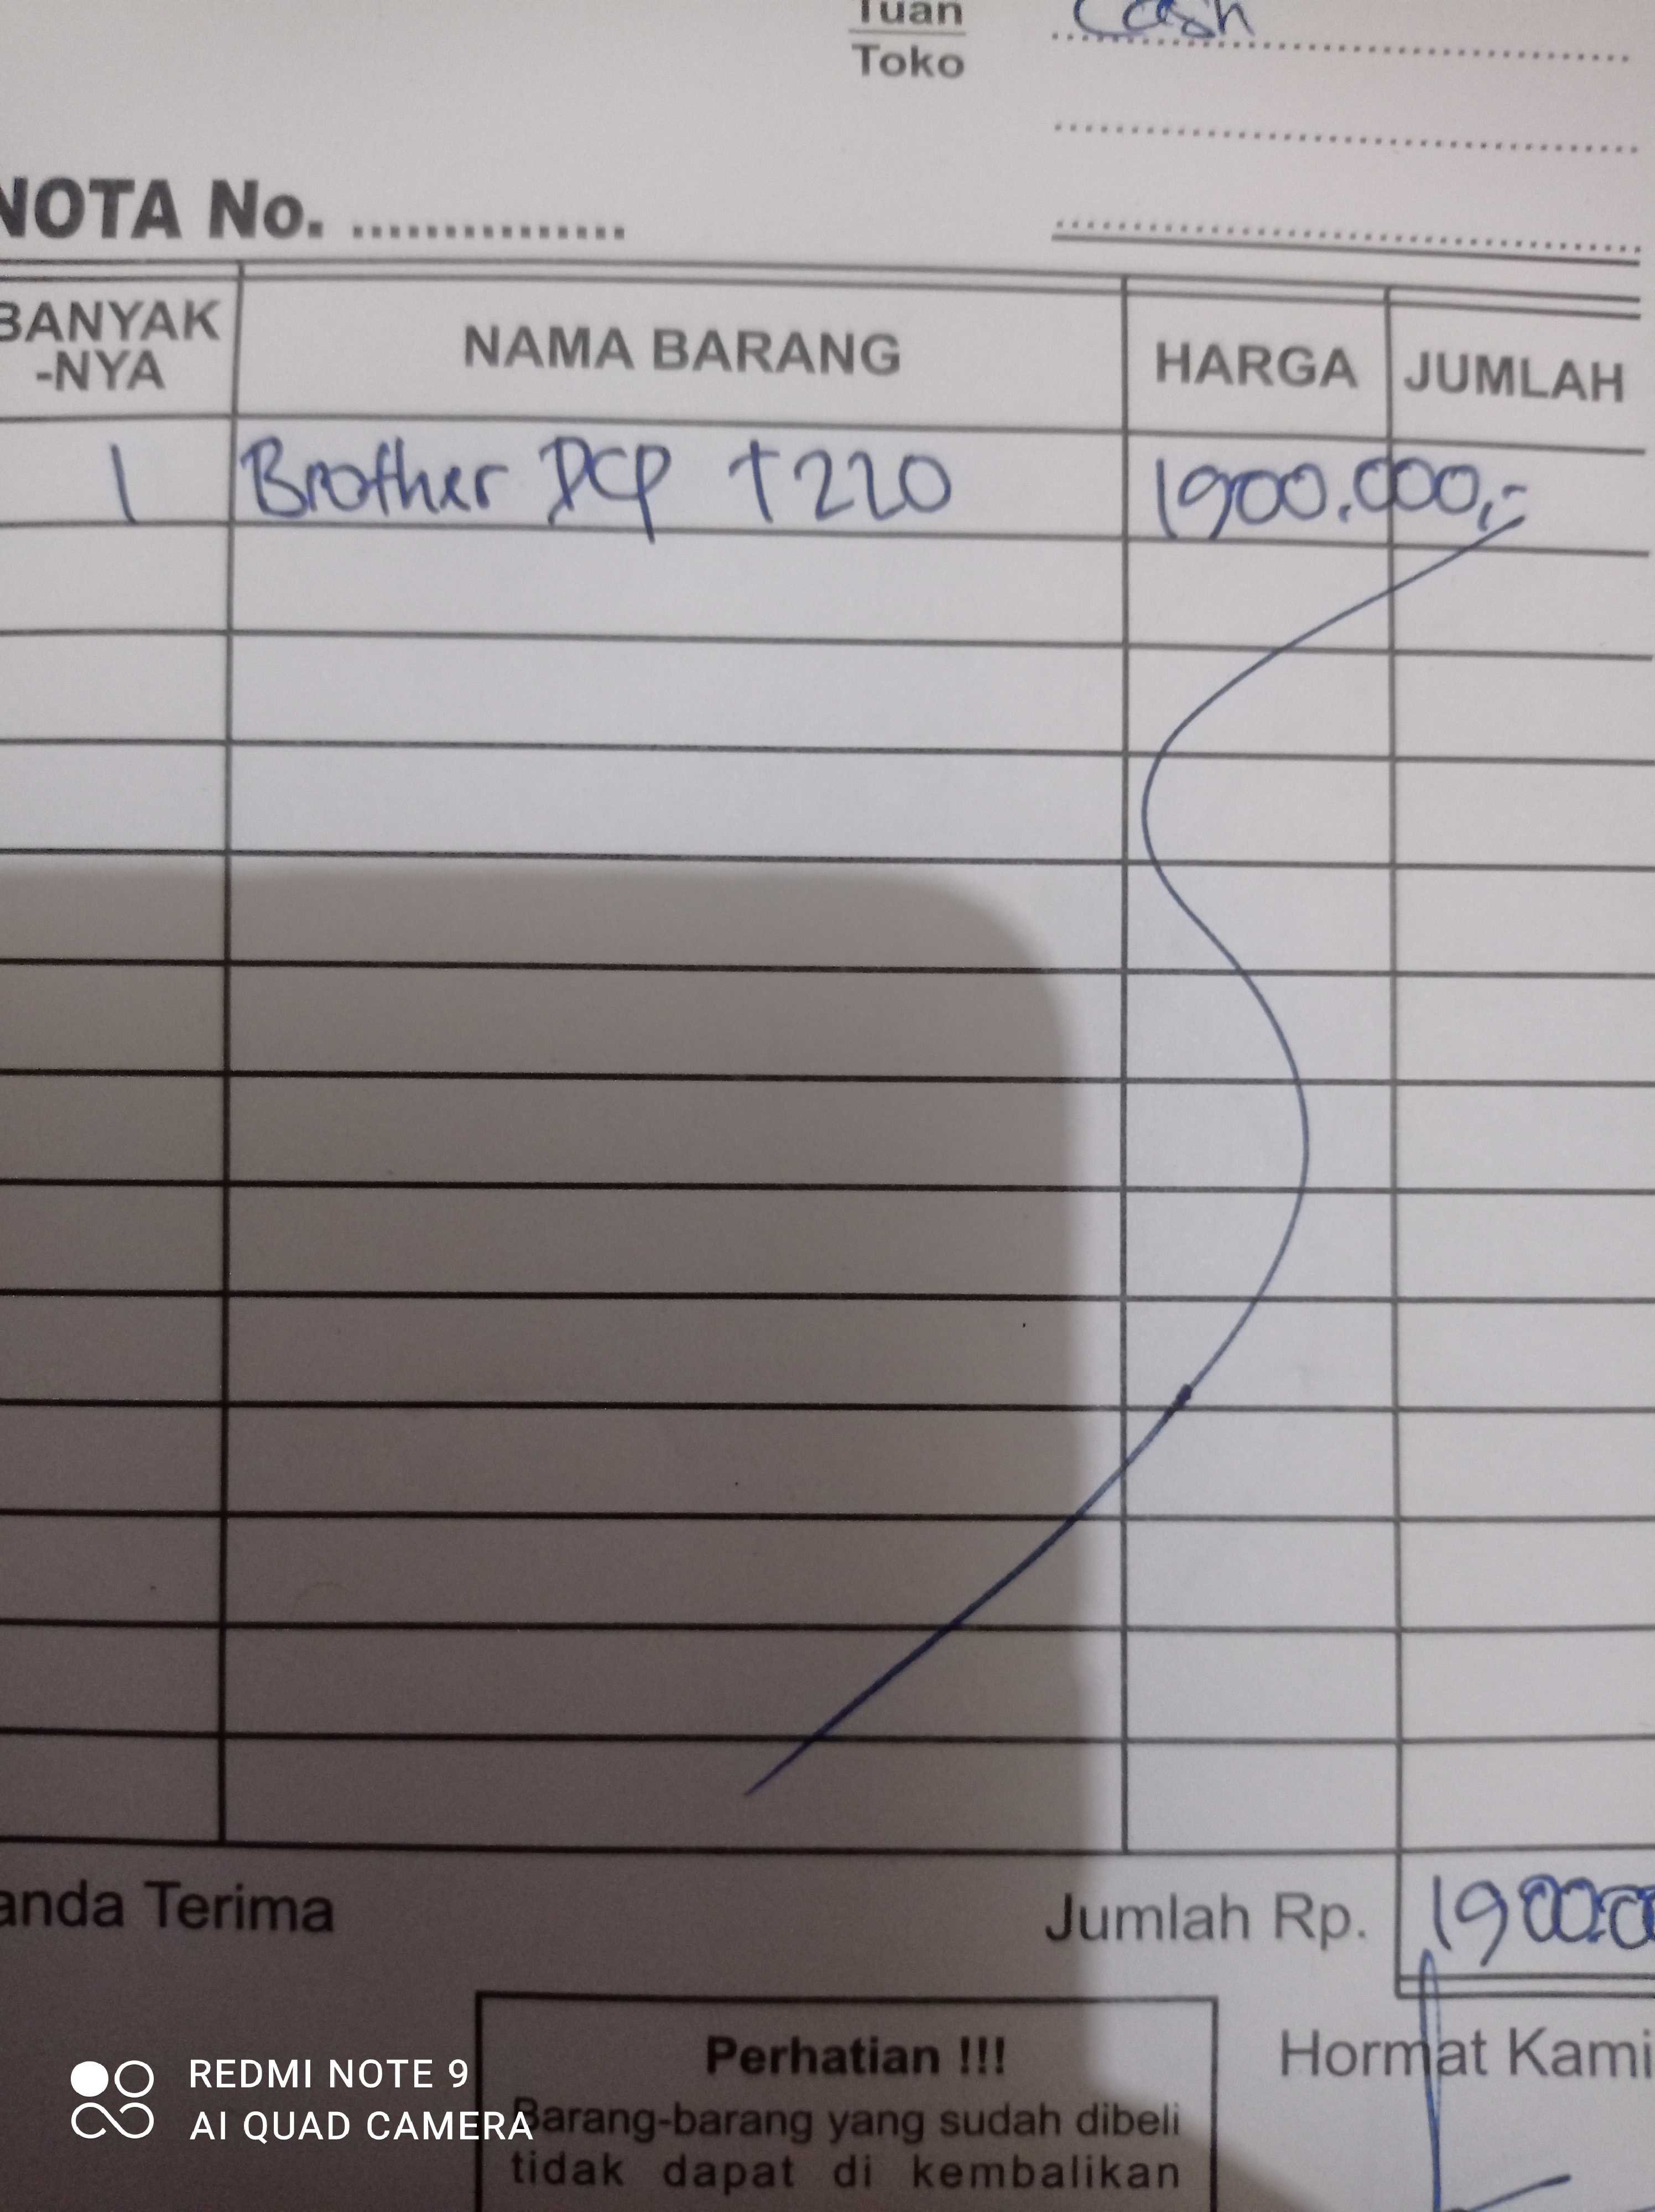 Tuan Cash
Toko
NOTA No. ...............
BANYAK
-NYA
NAMA BARANG
HARGA
JUMLAH
1 Brother DCP T220 1900.000,-
anda Terima
Jumlah Rp. 1900.00
Perhatian !!!
Hormat Kami
Barang-barang yang sudah dibeli
tidak dapat di kembalikan
REDMI NOTE 9
AI QUAD CAMERA